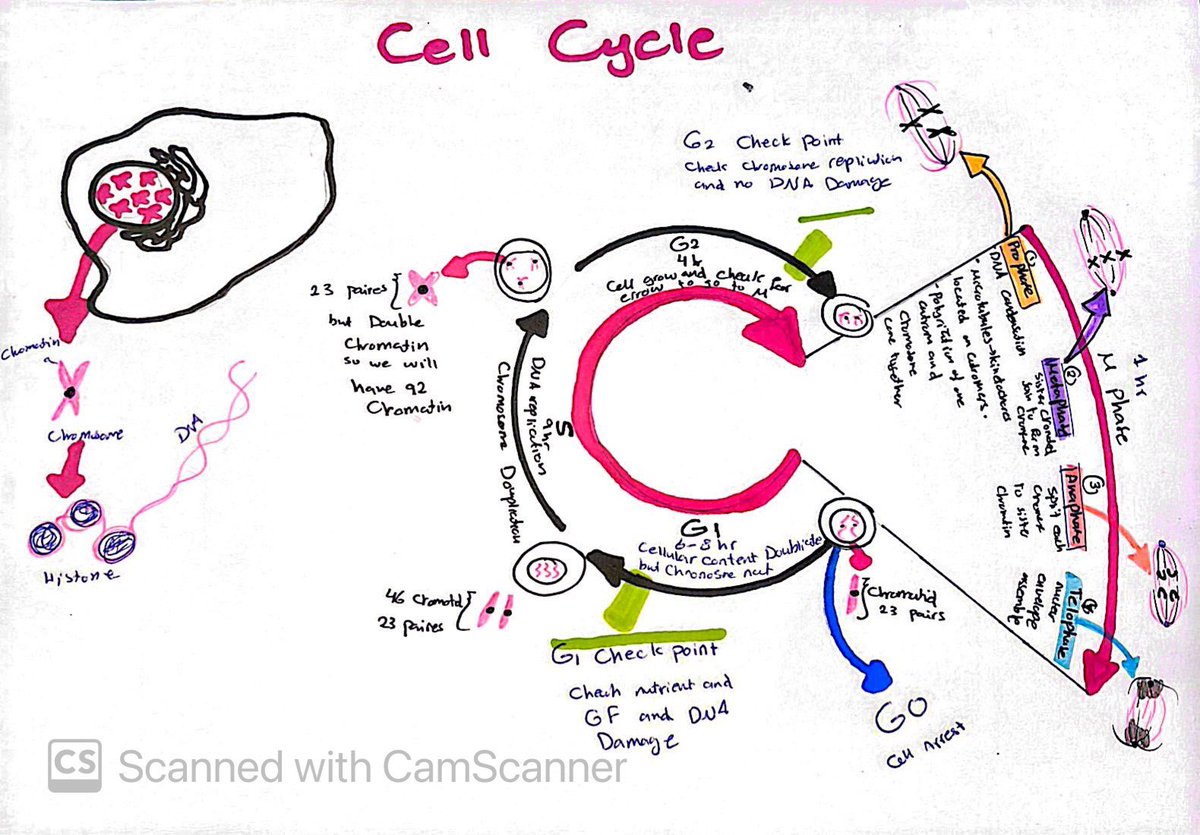 Cell Cycle
G2 Check point
Check chromosome replication
and no DNA Damage
G2
4 hr
Cell grow and check for
error to go to M
23 paires
but Double
Chromatin
so we will
have 92
Chromatin
Chromatin
Chromosome
DNA
Histone
DNA replication
9 hr
S
Chromosome Douplication
G1
6-8 hr
Cellular content Doublicate
but Chromosme not
46 Cromatid
23 paires
Chromatid
23 pairs
G1 Check point
Check nutrient and
GF and DNA
Damage
G0
Cell Arrest
1 hr
M phase
1
Prophase
DNA condensation
located on
come together
2
Metaphase
3
Anaphase
split each
to sister
chromatin
4
Telophase
nuclear
envelope
assemble
CS Scanned with CamScanner